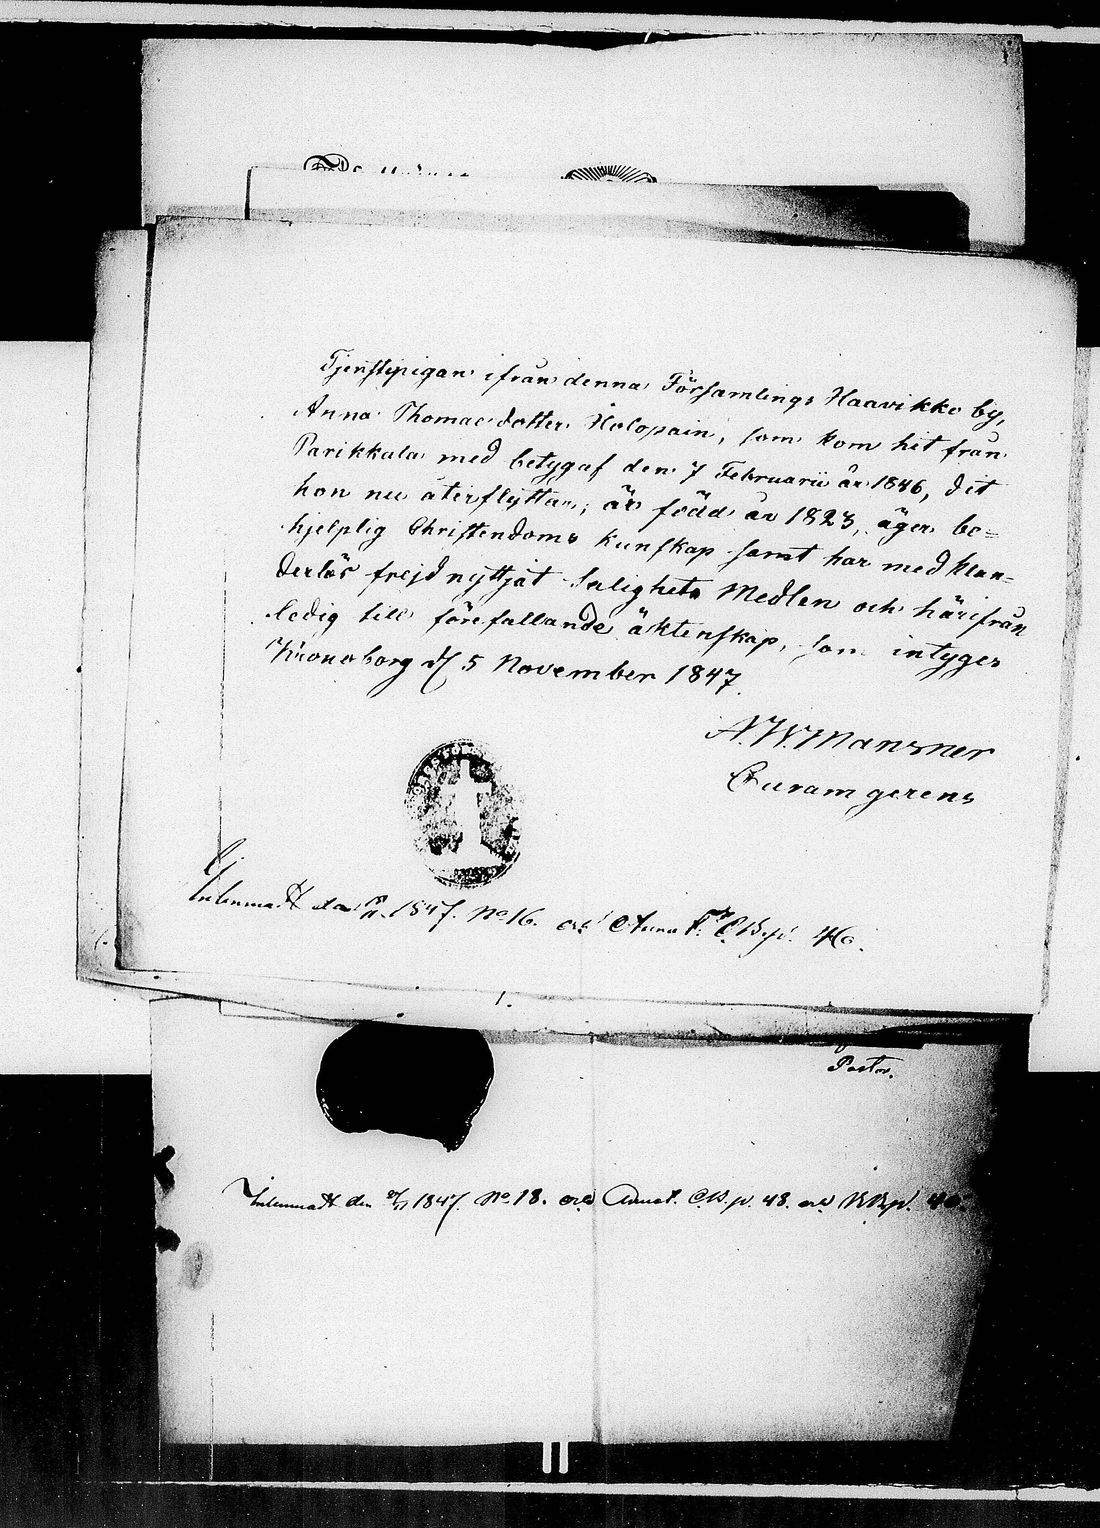 Tjenstepigan ifrån denna Församlings Haavikko by,
Anna Thomae dotter Holopain, som kom hit från
Parikkala med betyg af den 7 Februarii år 1846, dit
hon nu återflyttar, är född år 1823, äger be=
hjelplig Christendoms kunskap samt har med klan=
derlös frejd nyttjat Salighets Medlen och härifrån
ledig till förefallande äktenskap, som intygas
Kronoborg d. 5 November 1847.
A. W. Mansner
Curam gerens
den 1847. No 16.
p. 46.
Pastor.
den 1847. No 18. C.B. p. 43.